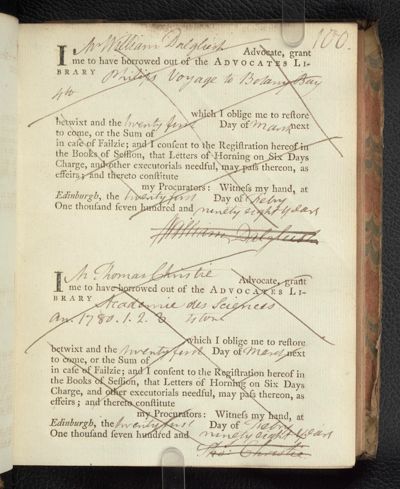 100.
I, Mr William Dalgliesh Advocate, grant
me to have borrowed out of the ADVOCATES LI-
BRARY Philips Voyage to Botany Bay
4to
which I oblige me to reſtore
betwixt and the twenty first Day of March next
to come, or the Sum of
in caſe of Failzie; and I conſent to the Regiſtration hereof in
the Books of Seſſion, that Letters of Horning on Six Days
Charge, and other executorials needful, may paſs thereon, as
effeirs; and thereto conſtitute
my Procurators: Witneſs my hand, at
Edinburgh, the twenty first Day of Febry
One thouſand ſeven hundred and ninety eight years
William Dalgliesh
I, Mr Thomas Christie Advocate, grant
me to have borrowed out of the ADVOCATES LI-
BRARY Academie des Sciences
an. 1780. 1. 2. 3
which I oblige me to reſtore
betwixt and the twenty first Day of March next
to come, or the Sum of
in caſe of Failzie; and I conſent to the Regiſtration hereof in
the Books of Seſſion, that Letters of Horning on Six Days
Charge, and other executorials needful, may paſs thereon, as
effeirs; and thereto conſtitute
my Procurators: Witneſs my hand, at
Edinburgh, the twenty first Day of Febry
One thouſand ſeven hundred and ninety eight years
Thos Christie